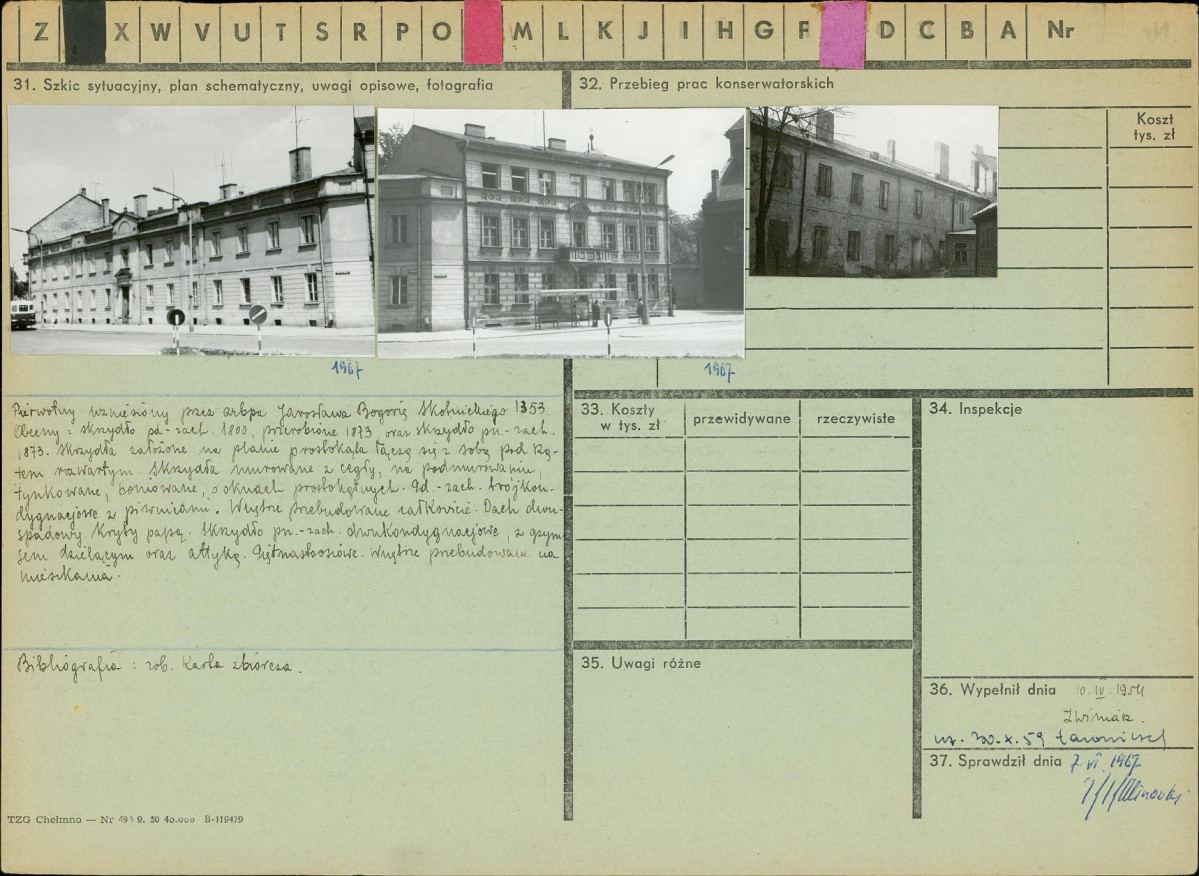 Z X W V U T S R P O M L K J I H G F D C B A Nr
31. Szkic sytuacyjny, plan schematyczny, uwagi opisowe, fotografia
32. Przebieg prac konserwatorskich
Koszt
tys. zł
1967
1967
Pierwotny wzniesiony przez arbpa Jarosława Bogorię Skotnickiego 1353.
Obecny: skrzydło pd-zach. 1800, przerobione 1873, oraz skrzydło pn.-zach.
1873. Skrzydła założone na planie prostokąta łączą się z sobą pod ką-
tem rozwartym. Skrzydła murowane z cegły, na podmurowaniu,
tynkowane, boniowane, o oknach prostokątnych. Pd.-zach. trójkon-
dygnacjowe z piwnicami. Wnętrze przebudowane całkowicie. Dach dwu-
spadowy kryty papą. Skrzydło pn.-zach. dwukondygnacjowe, z gzym-
sem dzielącym oraz attyką. Piętnastoosiowe. Wnętrze przebudowane na
mieszkania.
Bibliografia: zob. Karta zbiorcza.
33. Koszty
w tys. zł
przewidywane
rzeczywiste
34. Inspekcje
35. Uwagi różne
36. Wypełnił dnia 10.IV.1954
uz. 30.X.59
37. Sprawdził dnia 7 VI 1967
TZG Chełmno — Nr 9. 50 40.000 B-119479